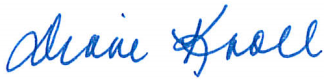 Diane Knoll